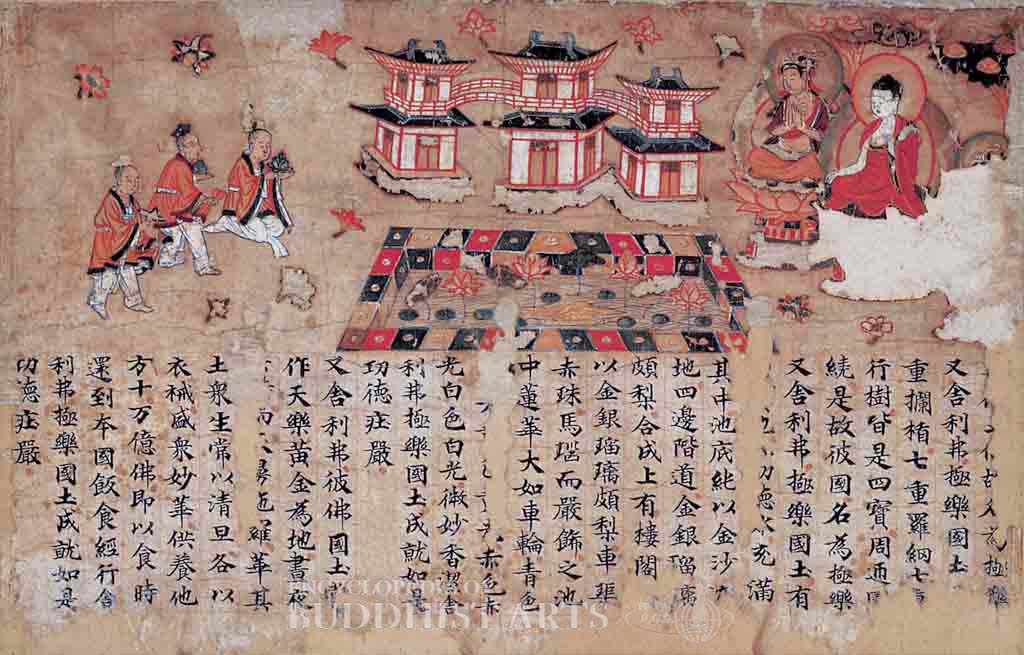 極
又舍利弗極樂國土
重攔楯七重羅網七
行樹皆是四寶周迊
繞是故彼國名為極樂
又舍利弗極樂國土有
功德水充滿
其中池底純以金沙
地四邊階道金銀瑠璃
頗梨合成上有樓閣
以金銀瑠璃頗梨車
赤珠馬瑙而嚴飾之池
中蓮華大如車輪青色
赤色赤
光白色白光微妙香潔舍
利弗極樂國土成就如是
功德莊嚴
又舍利弗彼佛國土
作天樂黃金為地晝夜
羅華其
土眾生常以清旦各以
衣裓盛眾妙華供養他
方十万億佛即以食時
還到本國飯食經行舍
利弗極樂國土成就如是
功德莊嚴
ENCYCLOPEDIA OF
BUDDHIST ARTS